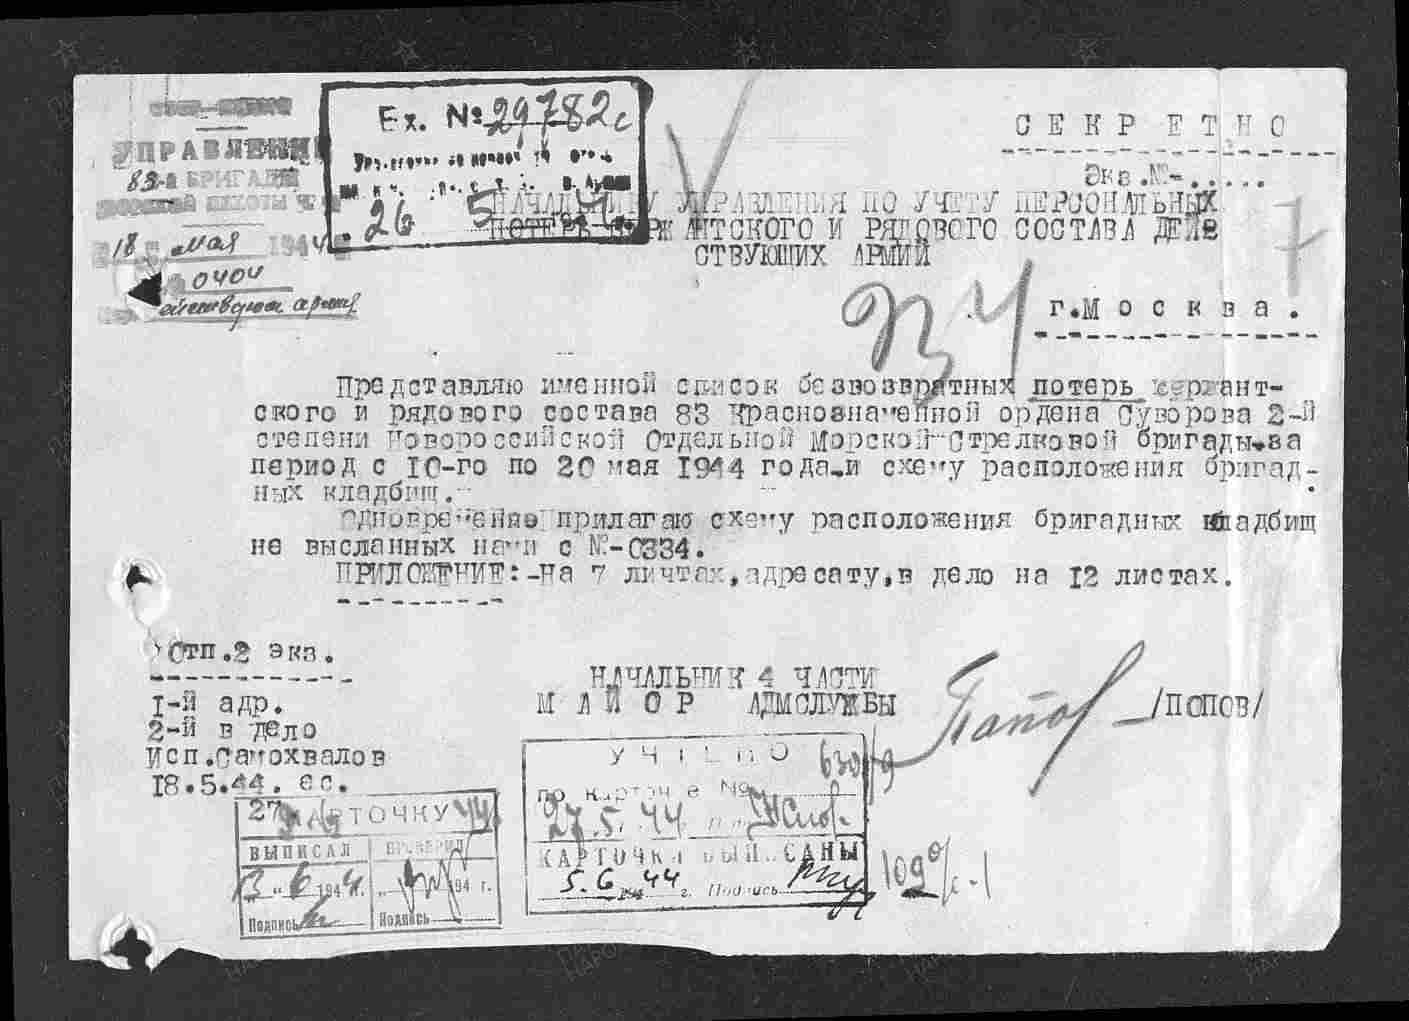 УПРАВЛЕНИЕ
83-й БРИГАДЫ
18 мая 1944
0404
Вх. № 29782с
26 5 44
СЕКРЕТНО
Экз.№-.....
НАЧАЛЬНИКУ УПРАВЛЕНИЯ ПО УЧЕТУ ПЕРСОНАЛЬНЫХ
ПОТЕРЬ СЕРЖАНТСКОГО И РЯДОВОГО СОСТАВА ДЕЙ
СТВУЮЩИХ АРМИЙ
г.Москва.
Представляю именной список безвозвратных потерь сержант-
ского и рядового состава 83 Краснознаменной ордена Суворова 2-й
степени Новороссийской Отдельной Морской Стрелковой бригады.за
период с 10-го по 20 мая 1944 года.и схему расположения бригад-
ных кладбищ.
Одновременно прилагаю схему расположения бригадных кладбищ
не высланных нами с №-0334.
ПРИЛОЖЕНИЕ:-На 7 личтах,адресату,в дело на 12 листах.
Отп.2 экз.
1-й адр.
2-й в дело
Исп.Самохвалов
18.5.44. ес.
НАЧАЛЬНИК 4 ЧАСТИ
МАЙОР АДМСЛУЖБЫ
Попов /ПОПОВ/
УЧТЕНО
по карточке №
27.5.44
КАРТОЧКИ ВЫПИСАНЫ
5.6.44 г. Подпись
КАРТОЧКУ
ВЫПИСАЛ ПРОВЕРИЛ
3 " 6 1944 г. " 194 г.
Подпись Подпись